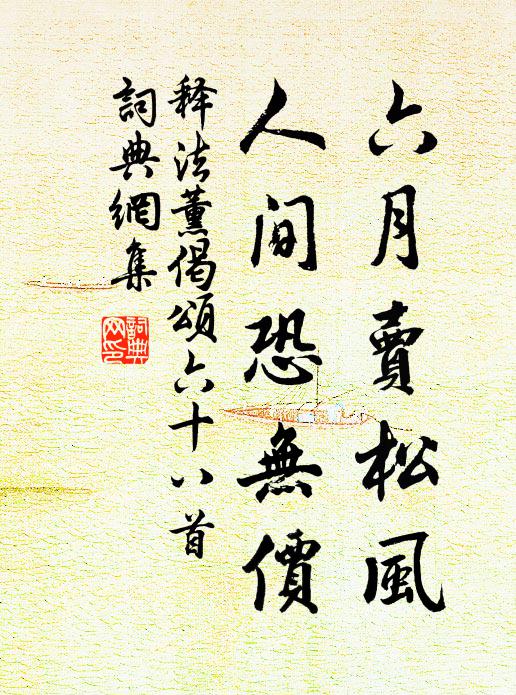 六月賣松風
人間恐無價
释法薰偈頌六十八首
詞典網集
詞典網印